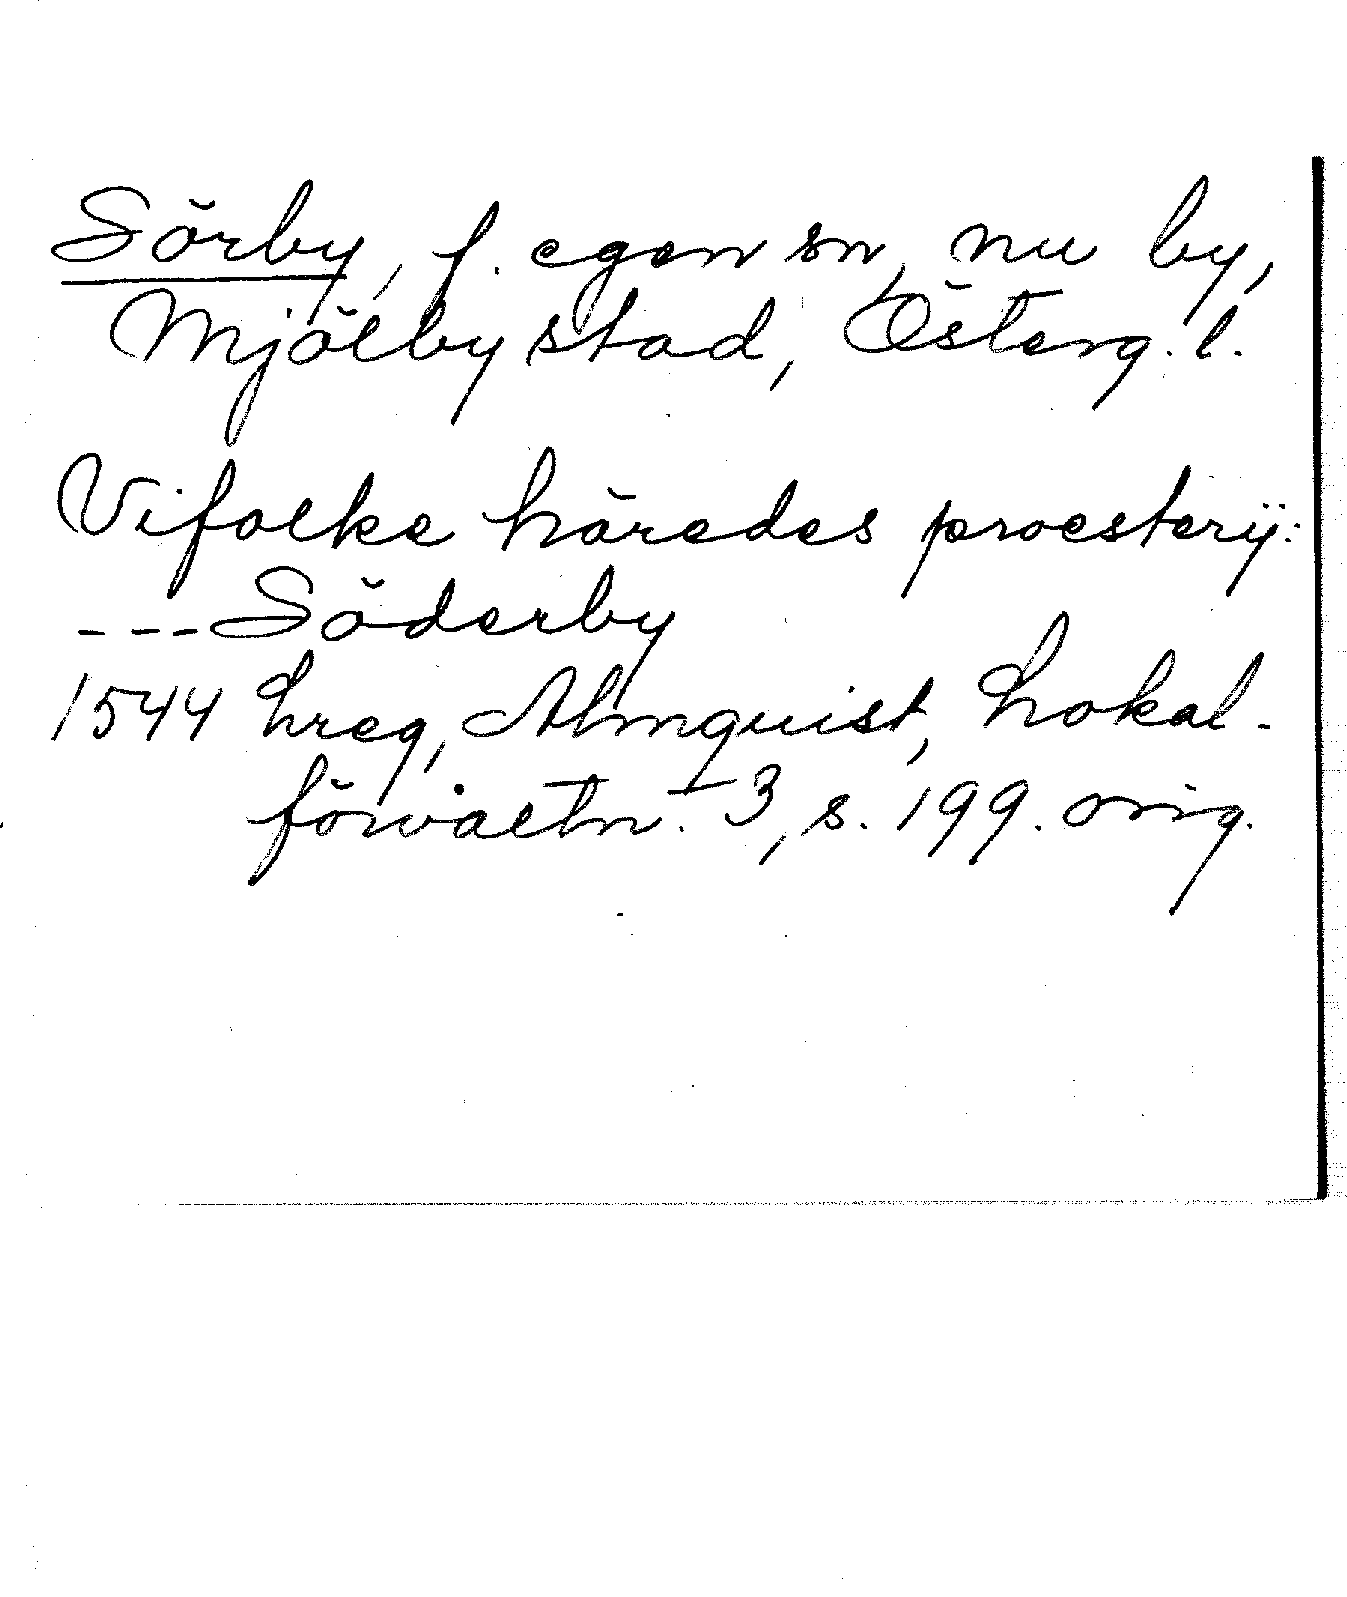 Sörby, f. egen sn, nu by,
Mjölby stad, Österg. l.
Vifolke häredes proesterij:
--- Söderby
1544 Lreg, Almquist, Lokal-
förvaltn. 3, s. 199. orig.